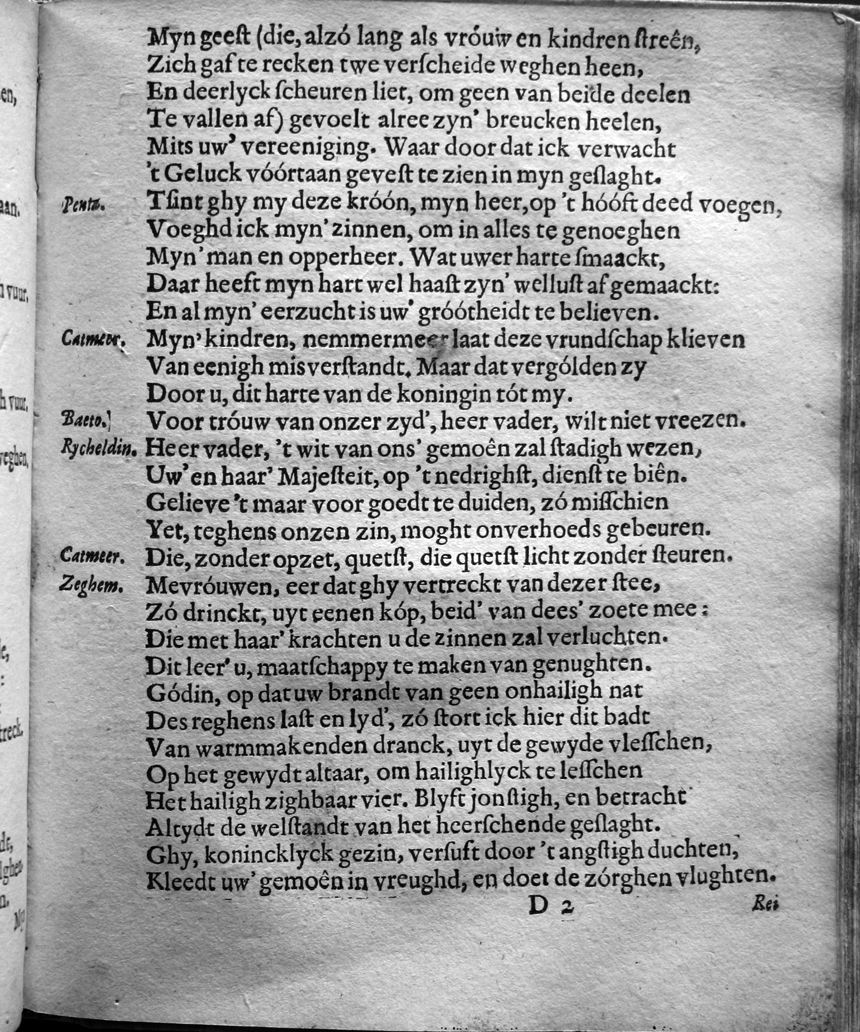 en,
Myn geeſt (die, alzó lang als vróuw en kindren ſtreên,
Zich gaf te recken twe verſcheide weghen heen,
En deerlyck ſcheuren liet, om geen van beide deelen
Te vallen af) gevoelt alree zyn' breucken heelen,
Mits uw' vereeniging. Waar door dat ick verwacht
't Geluck vóórtaan geveſt te zien in myn geſlaght.
aan. Penta. Tſint ghy my deze króón, myn heer,op 't hóóft deed voegen,
Voeghd ick myn' zinnen, om in alles te genoeghen
Myn' man en opperheer. Wat uwer harte ſmaackt,
Daar heeft myn hart wel haaſt zyn' welluſt af gemaackt:
vuur,
En al myn' eerzucht is uw' gróótheidt te believen.
Catmeer. Myn' kindren, nemmermeer laat deze vrundſchap klieven
Van eenigh misverſtandt. Maar dat vergólden zy
Door u, dit harte van de koningin tót my.
h vuur,
Baeto. Voor tróuw van onzer zyd', heer vader, wilt niet vreezen.
Rycheldin. Heer vader, 't wit van ons' gemoên zal ſtadigh wezen,
weghen,
Uw' en haar' Majeſteit, op 't nedrighſt, dienſt te biên.
Gelieve 't maar voor goedt te duiden, zó miſſchien
Yet, teghens onzen zin, moght onverhoeds gebeuren.
Catmeer. Die, zonder opzet, quetſt, die quetſt licht zonder ſteuren.
Zeghem. Mevróuwen, eer dat ghy vertreckt van dezer ſtee,
Zó drinckt, uyt eenen kóp, beid' van dees' zoete mee:
Die met haar' krachten u de zinnen zal verluchten.
Dit leer' u, maatſchappy te maken van genughten.
Gódin, op dat uw brandt van geen onhailigh nat
Des reghens laſt en lyd', zó ſtort ick hier dit badt
treck.
Van warmmakenden dranck, uyt de gewyde vleſſchen,
Op het gewydt altaar, om hailighlyck te leſſchen
Het hailigh zighbaar vier. Blyft jonſtigh, en betracht
Altydt de welſtandt van het heerſchende geſlaght.
Ghy, konincklyck gezin, verſuft door 't angſtigh duchten,
Kleedt uw' gemoên in vreughd, en doet de zórghen vlughten.
D 2 Rei